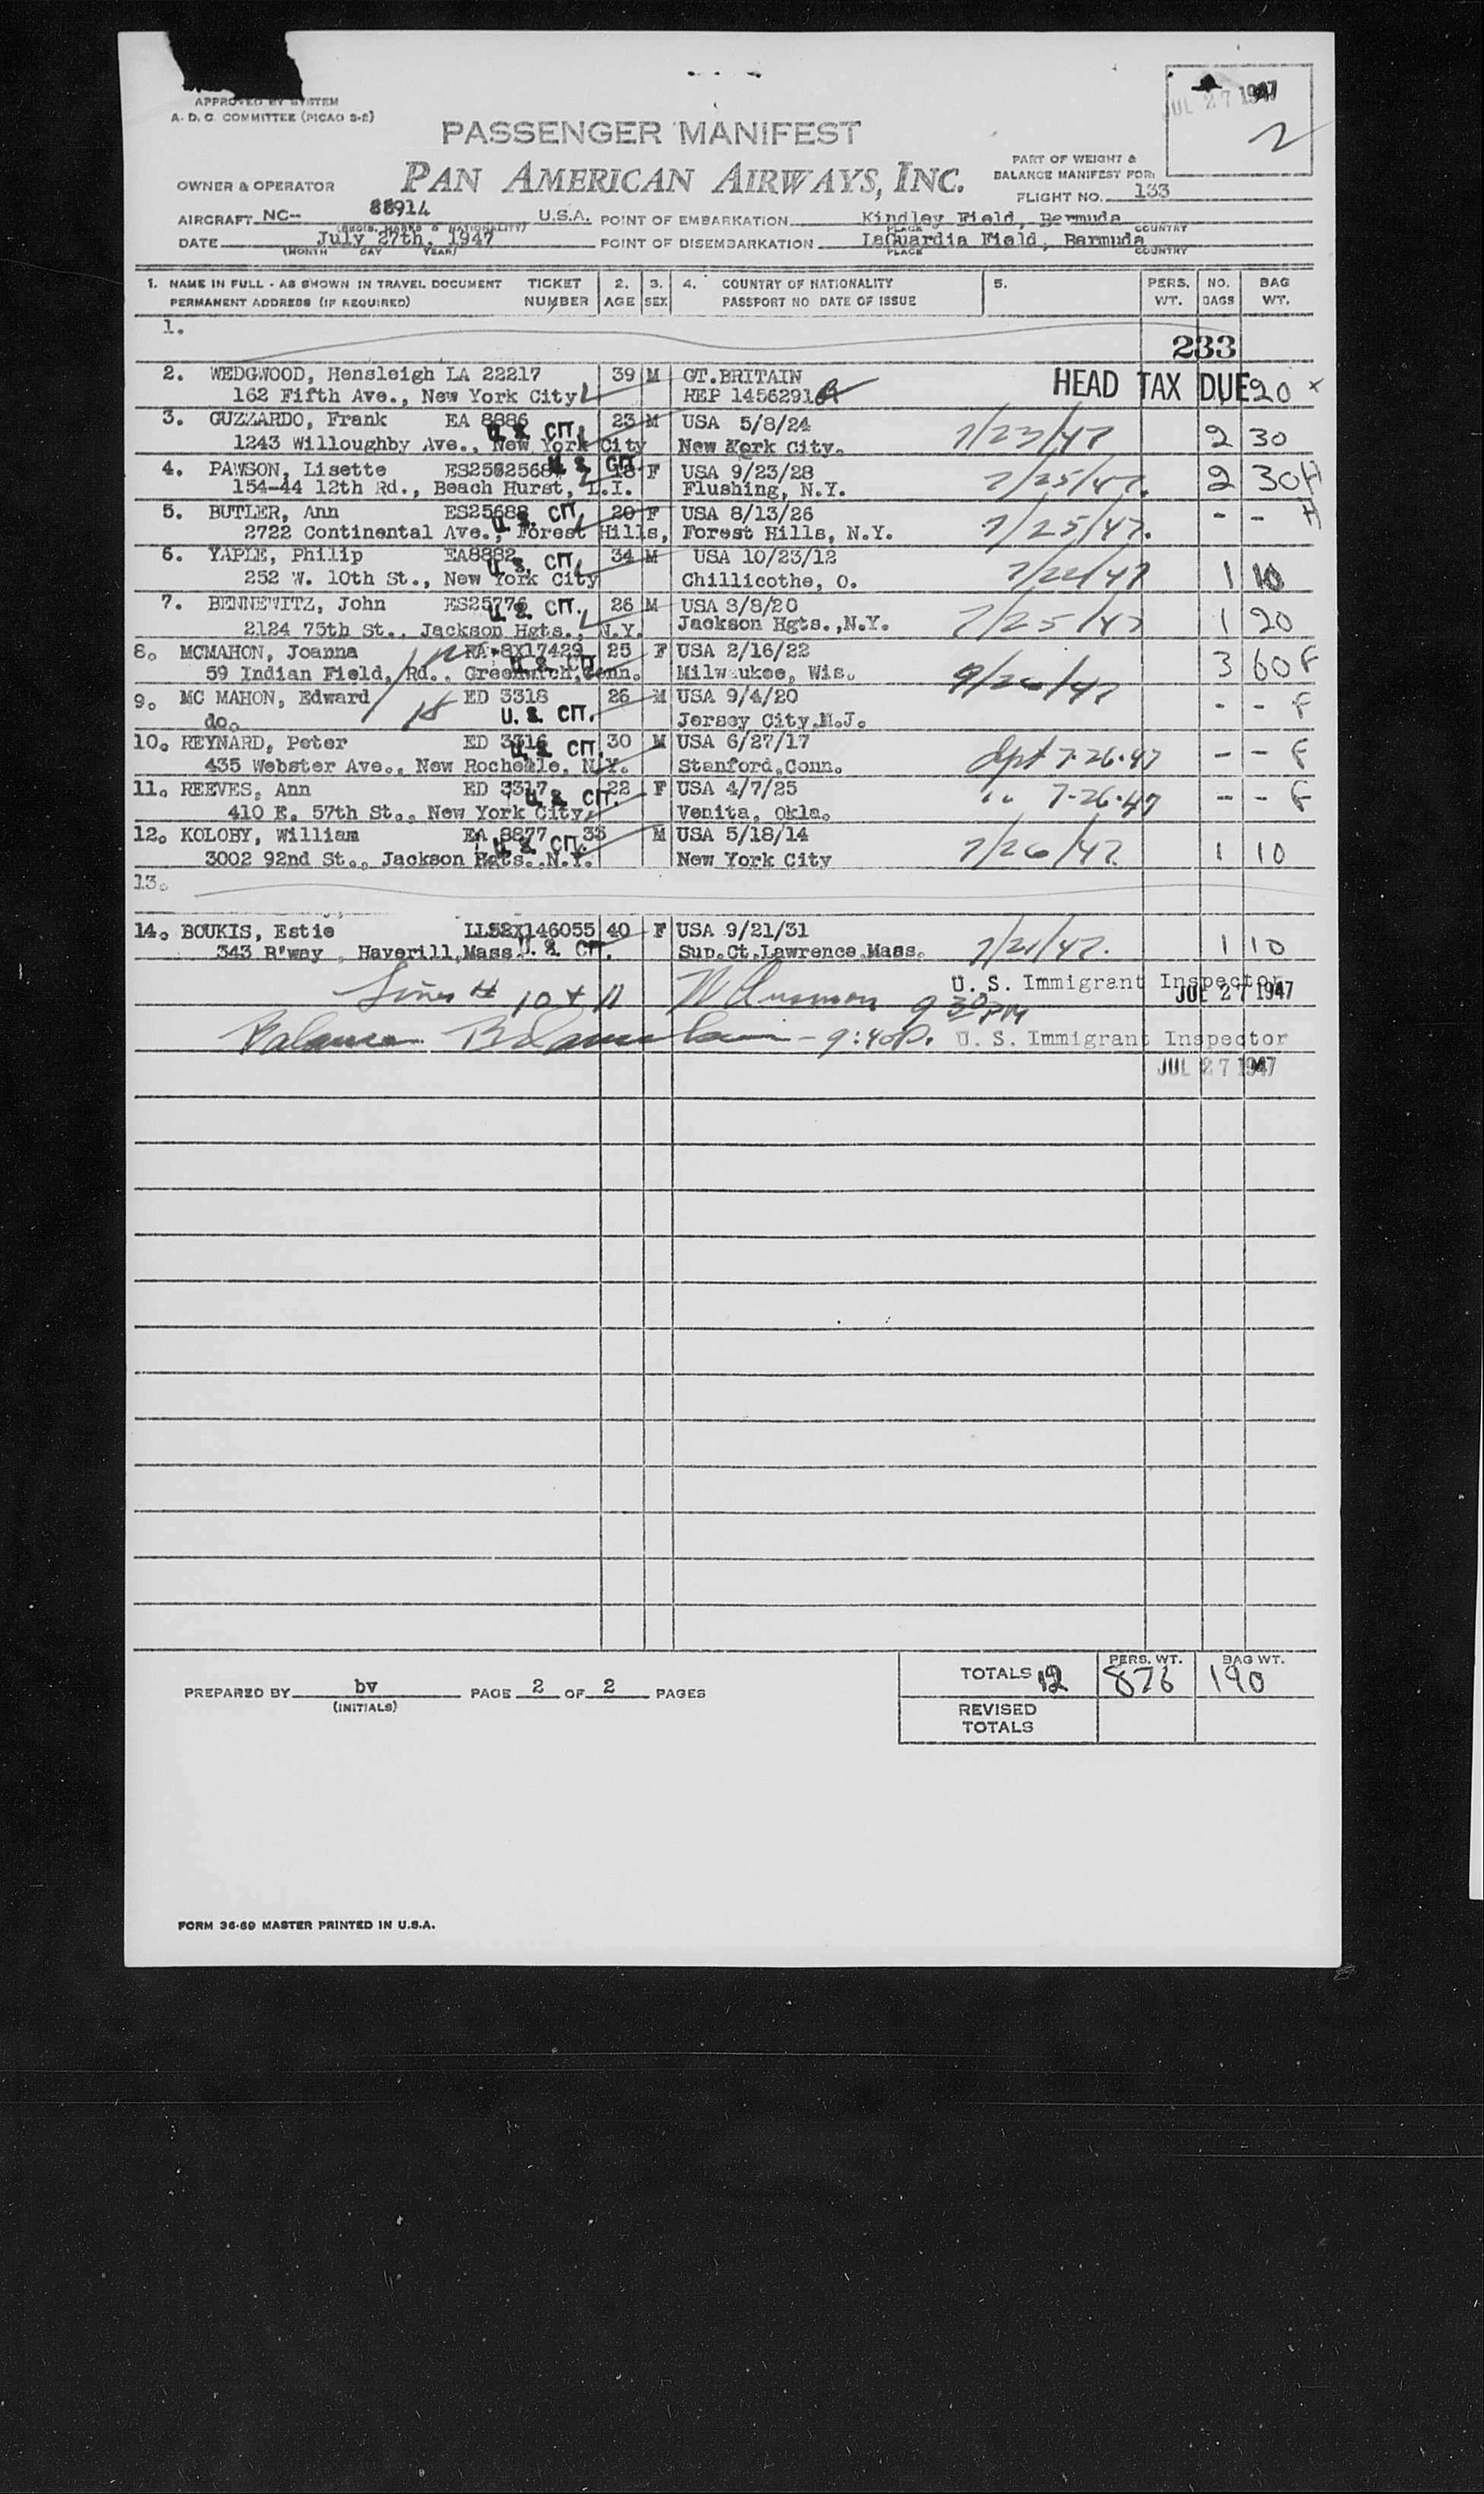 APPROVED BY SYSTEM
A. D. C. COMMITTEE (PICAO S-2)
JUL 27 1947
2
PASSENGER MANIFEST
PAN AMERICAN AIRWAYS, INC.
PART OF WEIGHT &
BALANCE MANIFEST FOR:
FLIGHT NO. 133
OWNER & OPERATOR
AIRCRAFT NC-- 88914 U.S.A. POINT OF EMBARKATION Kindley Field, Bermuda
(REGIS. MARKS & NATIONALITY) PLACE COUNTRY
DATE July 27th, 1947 POINT OF DISEMBARKATION LaGuardia Field, Bermuda
(MONTH DAY YEAR) PLACE COUNTRY
1. NAME IN FULL - AS SHOWN IN TRAVEL DOCUMENT TICKET 2. 3. 4. COUNTRY OF NATIONALITY 5. PERS. NO. BAG
PERMANENT ADDRESS (IF REQUIRED) NUMBER AGE SEX PASSPORT NO DATE OF ISSUE WT. BAGS WT.
1.
233
2. WEDGWOOD, Hensleigh LA 22217 39 M GT.BRITAIN HEAD TAX DUE 20 x
162 Fifth Ave., New York City REP 1456291
3. GUZZARDO, Frank EA 8886 U. S. CIT. 23 M USA 5/8/24 7/23/47 2 30
1243 Willoughby Ave., New York City New York City.
4. PAWSON, Lisette U. S. CIT. F USA 9/23/28 7/25/47. 2 30 H
154-44 12th Rd., Beach Hurst, L.I. Flushing, N.Y.
5. BUTLER, Ann ES25688 U. S. CIT. 20 F USA 8/13/26 7/25/47. - - H
2722 Continental Ave., Forest Hills, Forest Hills, N.Y.
6. YAPLE, Philip EA8882 U. S. CIT. 34 M USA 10/23/12 7/22/47 1 10
252 W. 10th St., New York City Chillicothe, O.
7. BENNEWITZ, John ES25776 U. S. CIT. 26 M USA 8/8/20 7/25/47 1 20
2124 75th St., Jackson Hgts., N.Y. Jackson Hgts.,N.Y.
8. MCMAHON, Joanna RA-8X17429 U. S. CIT 25 F USA 2/16/22 7/26/47 3 60 F
59 Indian Field, Rd., Greenwich,Conn. Milwaukee, Wis.
9. MC MAHON, Edward ED 3318 26 M USA 9/4/20 - - F
do. U. S. CIT. Jersey City,N.J.
10. REYNARD, Peter ED 3316 U. S. CIT. 30 M USA 6/27/17 dpt 7-26-47 - - F
435 Webster Ave., New Rochelle, N.Y. Stanford,Conn.
11. REEVES, Ann ED 3317 U. S. CIT. 22 F USA 4/7/25 " 7-26-47 - - F
410 E. 57th St., New York City Venita, Okla.
12. KOLOBY, William EA 8877 U. S. CIT. 33 M USA 5/18/14 7/26/47 1 10
3002 92nd St., Jackson Hgts.,N.Y. New York City
13.
14. BOUKIS, Estie LLS2X146055 40 F USA 9/21/31 7/21/47. 1 10
343 B'way , Haverill,Mass. U. S. CIT. Sup.Ct.Lawrence,Mass.
Lines # 10 + 11 9 30 PM U. S. Immigrant Inspector
JUL 27 1947
Balance - 9:40P. U. S. Immigrant Inspector
JUL 27 1947
PREPARED BY bv PAGE 2 OF 2 PAGES
(INITIALS)
PERS. WT. BAG WT.
TOTALS 12 876 190
REVISED
TOTALS
FORM 36-69 MASTER PRINTED IN U.S.A.